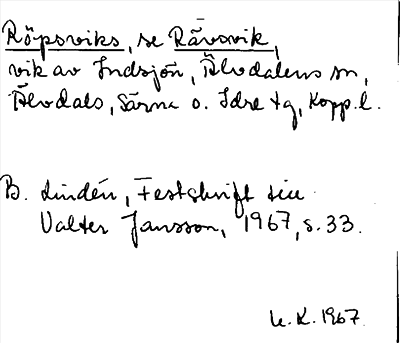 Röpsviks, se Rävsvik,
vik av Indsjön, Älvdalens sn,
Älvdals, Särna o. Idre tg, Kopp. l.
B. Lindén, Festskrift till
Valter Jansson, 1967, s. 33.
U.K. 1967